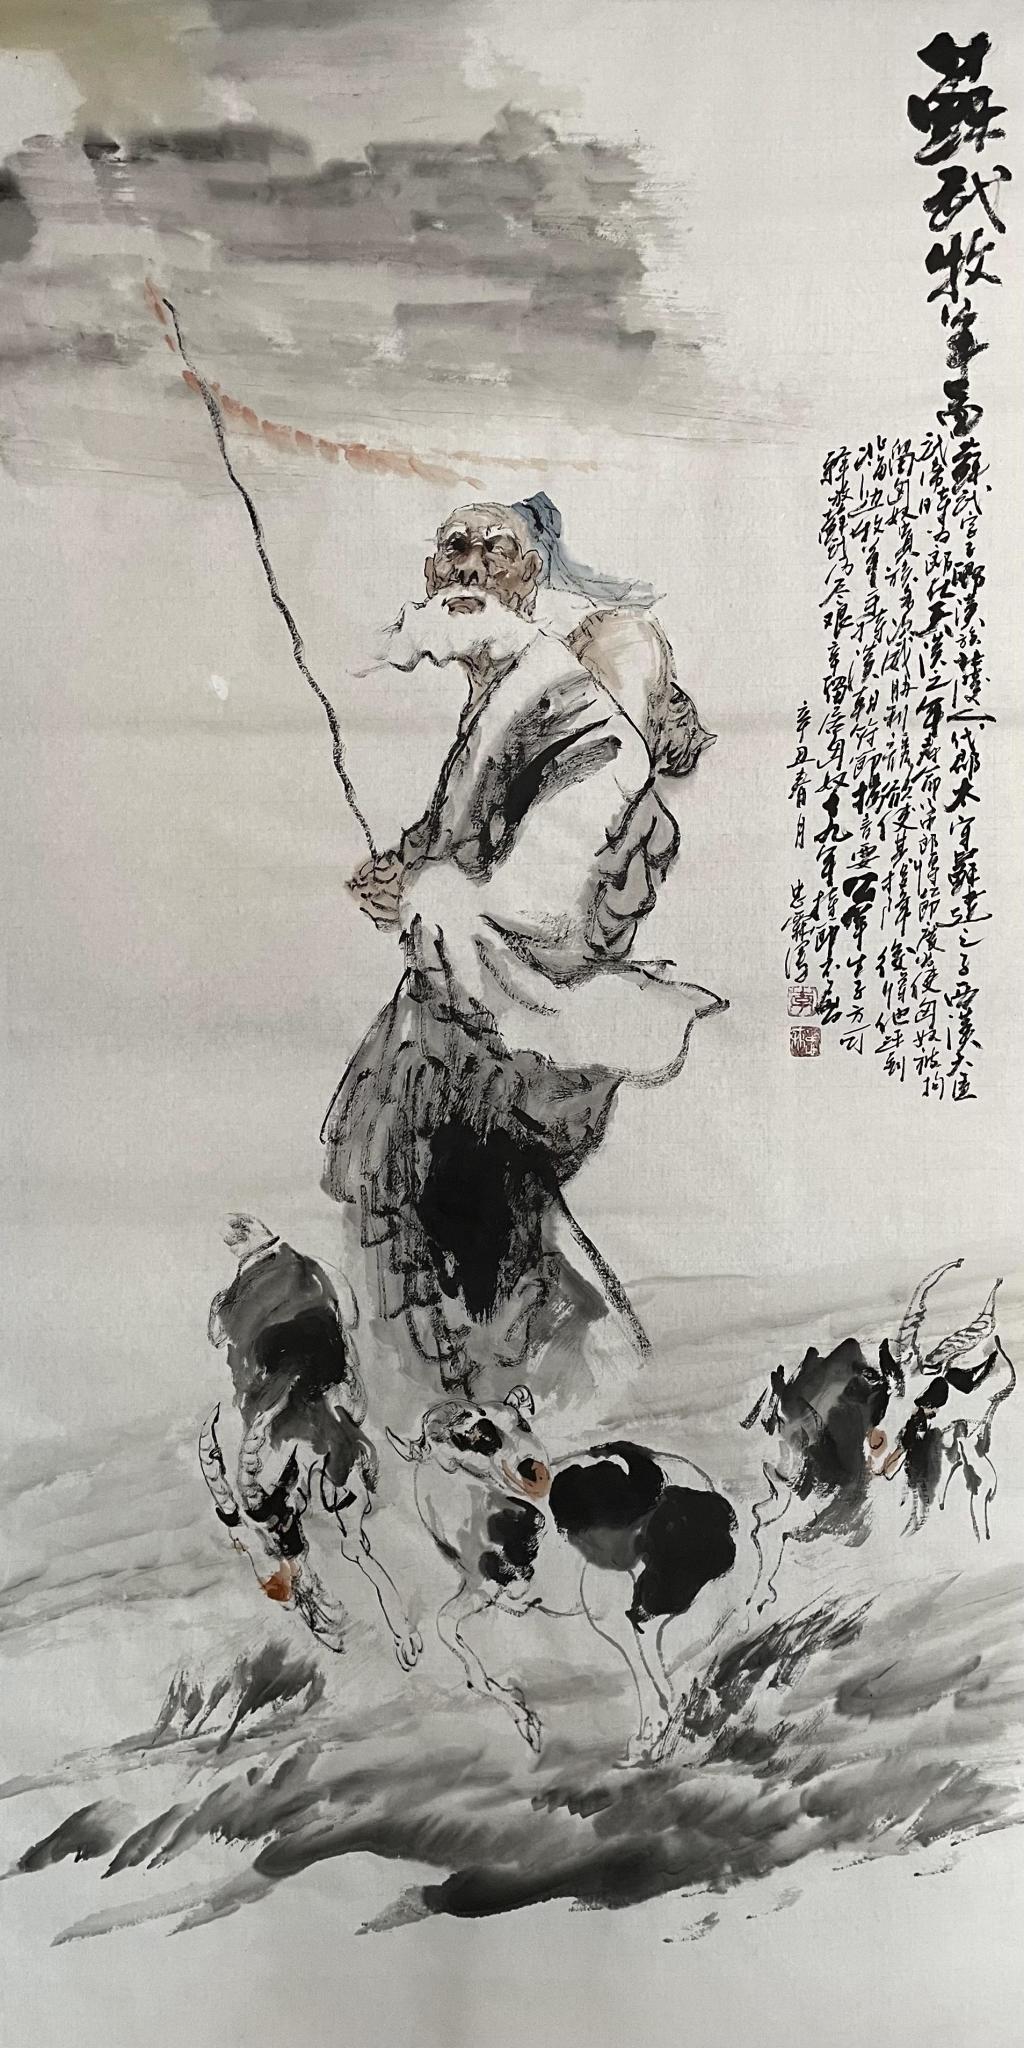 蘇武牧羊图
蘇武字子卿漢族杜陵人代郡太守蘇建之子西漢大臣
武帝時为郎天漢元年奉命以中郎將持節出使匈奴被拘
匈奴貴族多次威脅利誘欲使其投降後將他迁到
北海边牧羊手持漢朝符節揚言要公羊生子方可
釋放蘇武历尽艰辛留居匈奴十九年持節不屈
辛丑春月
忠霖寫